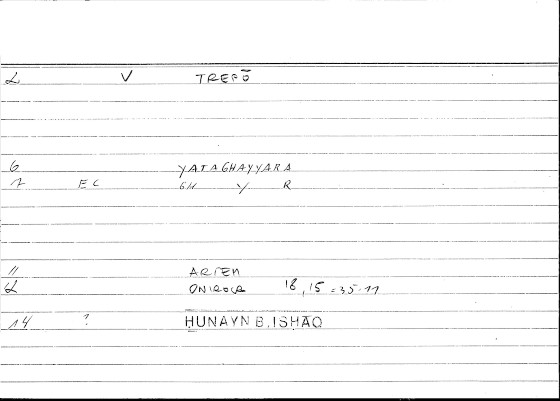 2 V TREPŌ
6 YATAGHAYYARA
7 EC GH Y R
11 ARTEM
12 ONIROCR 18,15 = 35.11
14 ? HUNAYN B. ISHAQ